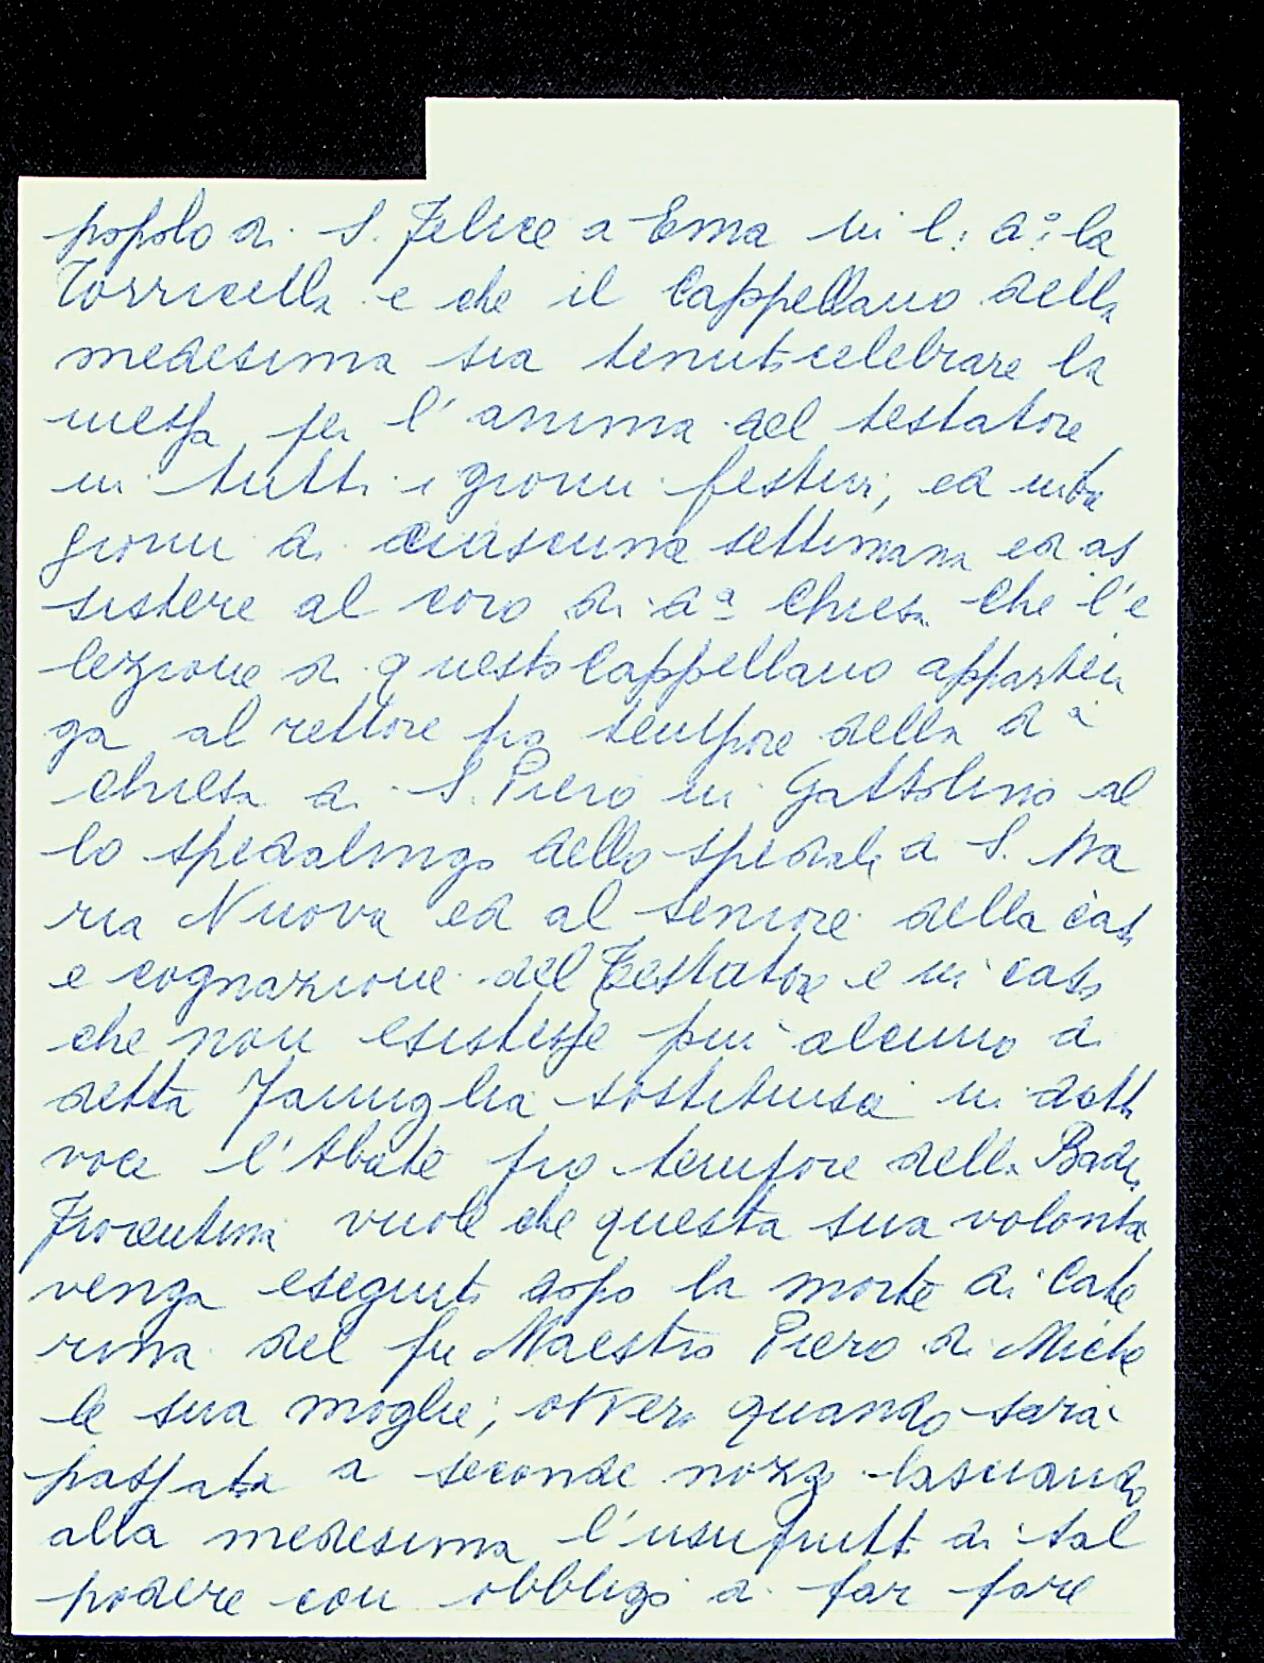 popolo di S. Felice a Ema in l: d.º la
Torricella e che il Cappellano della
medesima sia tenuto celebrare la
messa per l'anima del testatore
in tutti i giorni festivi, ed in tre
giorni di ciascuna settimana ed as
sistere al coro di d.ª Chiesa Che l'e
lezione di questo Cappellano apparten
ga al rettore pro tempore della d.ª
chiesa di S. Piero in Gattolino al
lo spedalingo dello spedale di S. Ma
ria Nuova ed al seniore della casa
e cognazione del Testatore e in caso
che non esistesse più alcuno di
detta Famiglia sostituisce in detta
voce l'Abate pro tempore della Badia
Fiorentina vuole che questa sua volontà
venga eseguita dopo la morte di Cate
rina del fu Maestro Piero di Miche
le sua moglie; ovvero quando sarà
passata a seconde nozze lasciando
alla medesima l'usufrutto di tal
podere con obbligo di far fare